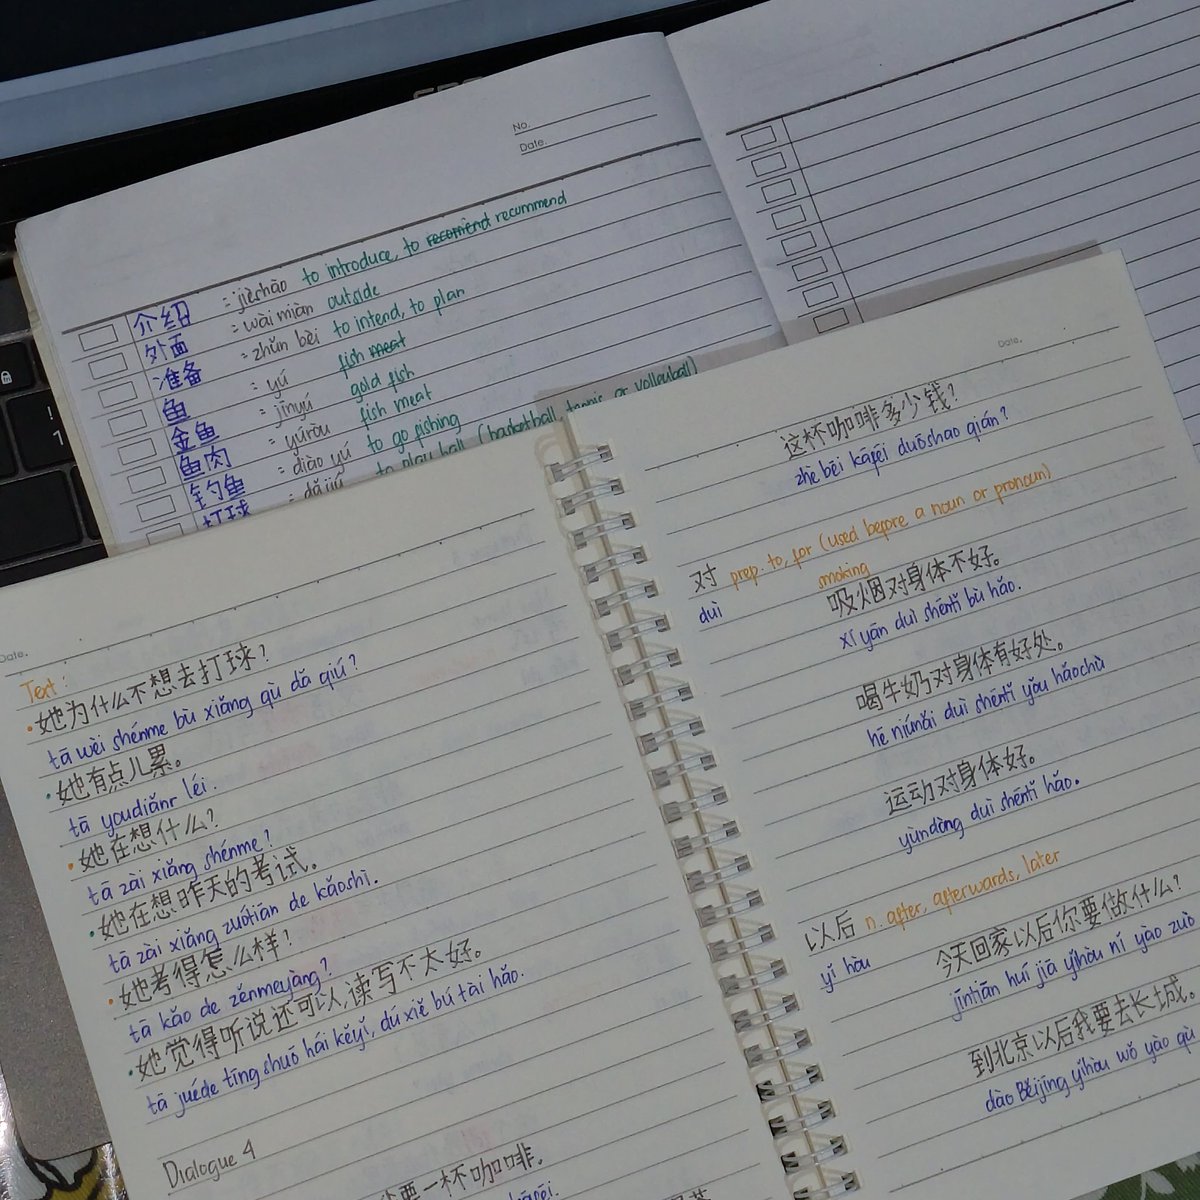 No.
Date.
介绍 = jièshào to introduce, to recomend recommend
外面 = wài miàn outside
准备 = zhǔn bèi to intend, to plan
鱼 = yú fish meat
金鱼 = jīnyú gold fish
鱼肉 = yúròu fish meat
钓鱼 = diào yú to go fishing
打球 = dǎ qiú to play ball (basketball, tennis, or volleyball)
Date.
Text:
• 她为什么不想去打球?
tā wèi shénme bù xiǎng qù dǎ qiú?
• 她有点儿累。
tā youdiǎnr léi.
• 她在想什么?
tā zài xiǎng shénme?
• 她在想昨天的考试。
tā zài xiǎng zuótiān de kǎoshì.
• 她考得怎么样?
tā kǎo de zěnmeyàng?
• 她觉得听说还可以,读写不太好。
tā juéde tīng shuō hái kěyǐ, dú xiě bú tài hǎo.
Dialogue 4
要一杯咖啡。
Date.
这杯咖啡多少钱?
zhè bēi kāfēi duōshao qián?
对 prep. to, for (used before a noun or pronoun)
duì
smoking
吸烟对身体不好。
xī yān duì shēntǐ bù hǎo.
喝牛奶对身体有好处。
hē niúnǎi duì shēntǐ yǒu hǎochù
运动对身体好。
yùndòng duì shēntǐ hǎo.
以后 n. after, afterwards, later
yǐ hòu
今天回家以后你要做什么?
jīntiān huí jiā yǐhòu nǐ yào zuò
到北京以后我要去长城。
dào Běijīng yǐhòu wǒ yào qù